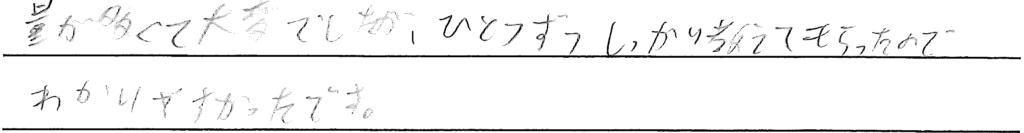 量が多くて大変でしたが、ひとつずつしっかり教えてもらったので
わかりやすかったです。